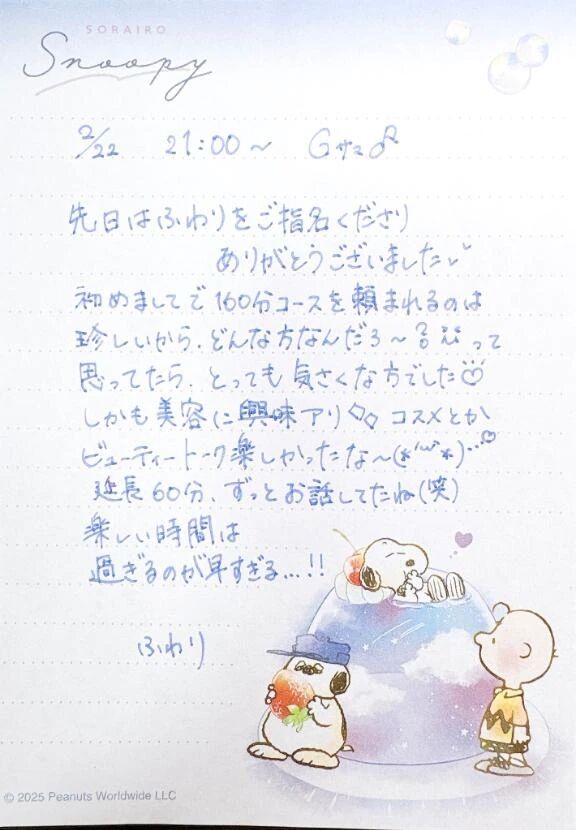 SORAIRO
Snoopy
2/22 21:00~ Gサマ
先日はふわりをご指名くださり
ありがとうございました
初めましてで160分コースを頼まれるのは
珍しいから、どんな方なんだろ~って
思ってたら、とっても気さくな方でした♡
しかも美容に興味アリ◇◇ コスメとか
ビューティートーク楽しかったな~(*'ω'*)…♡
延長60分、ずっとお話してたね(笑)
楽しい時間は
過ぎるのが早すぎる…!!
ふわり
© 2025 Peanuts Worldwide LLC